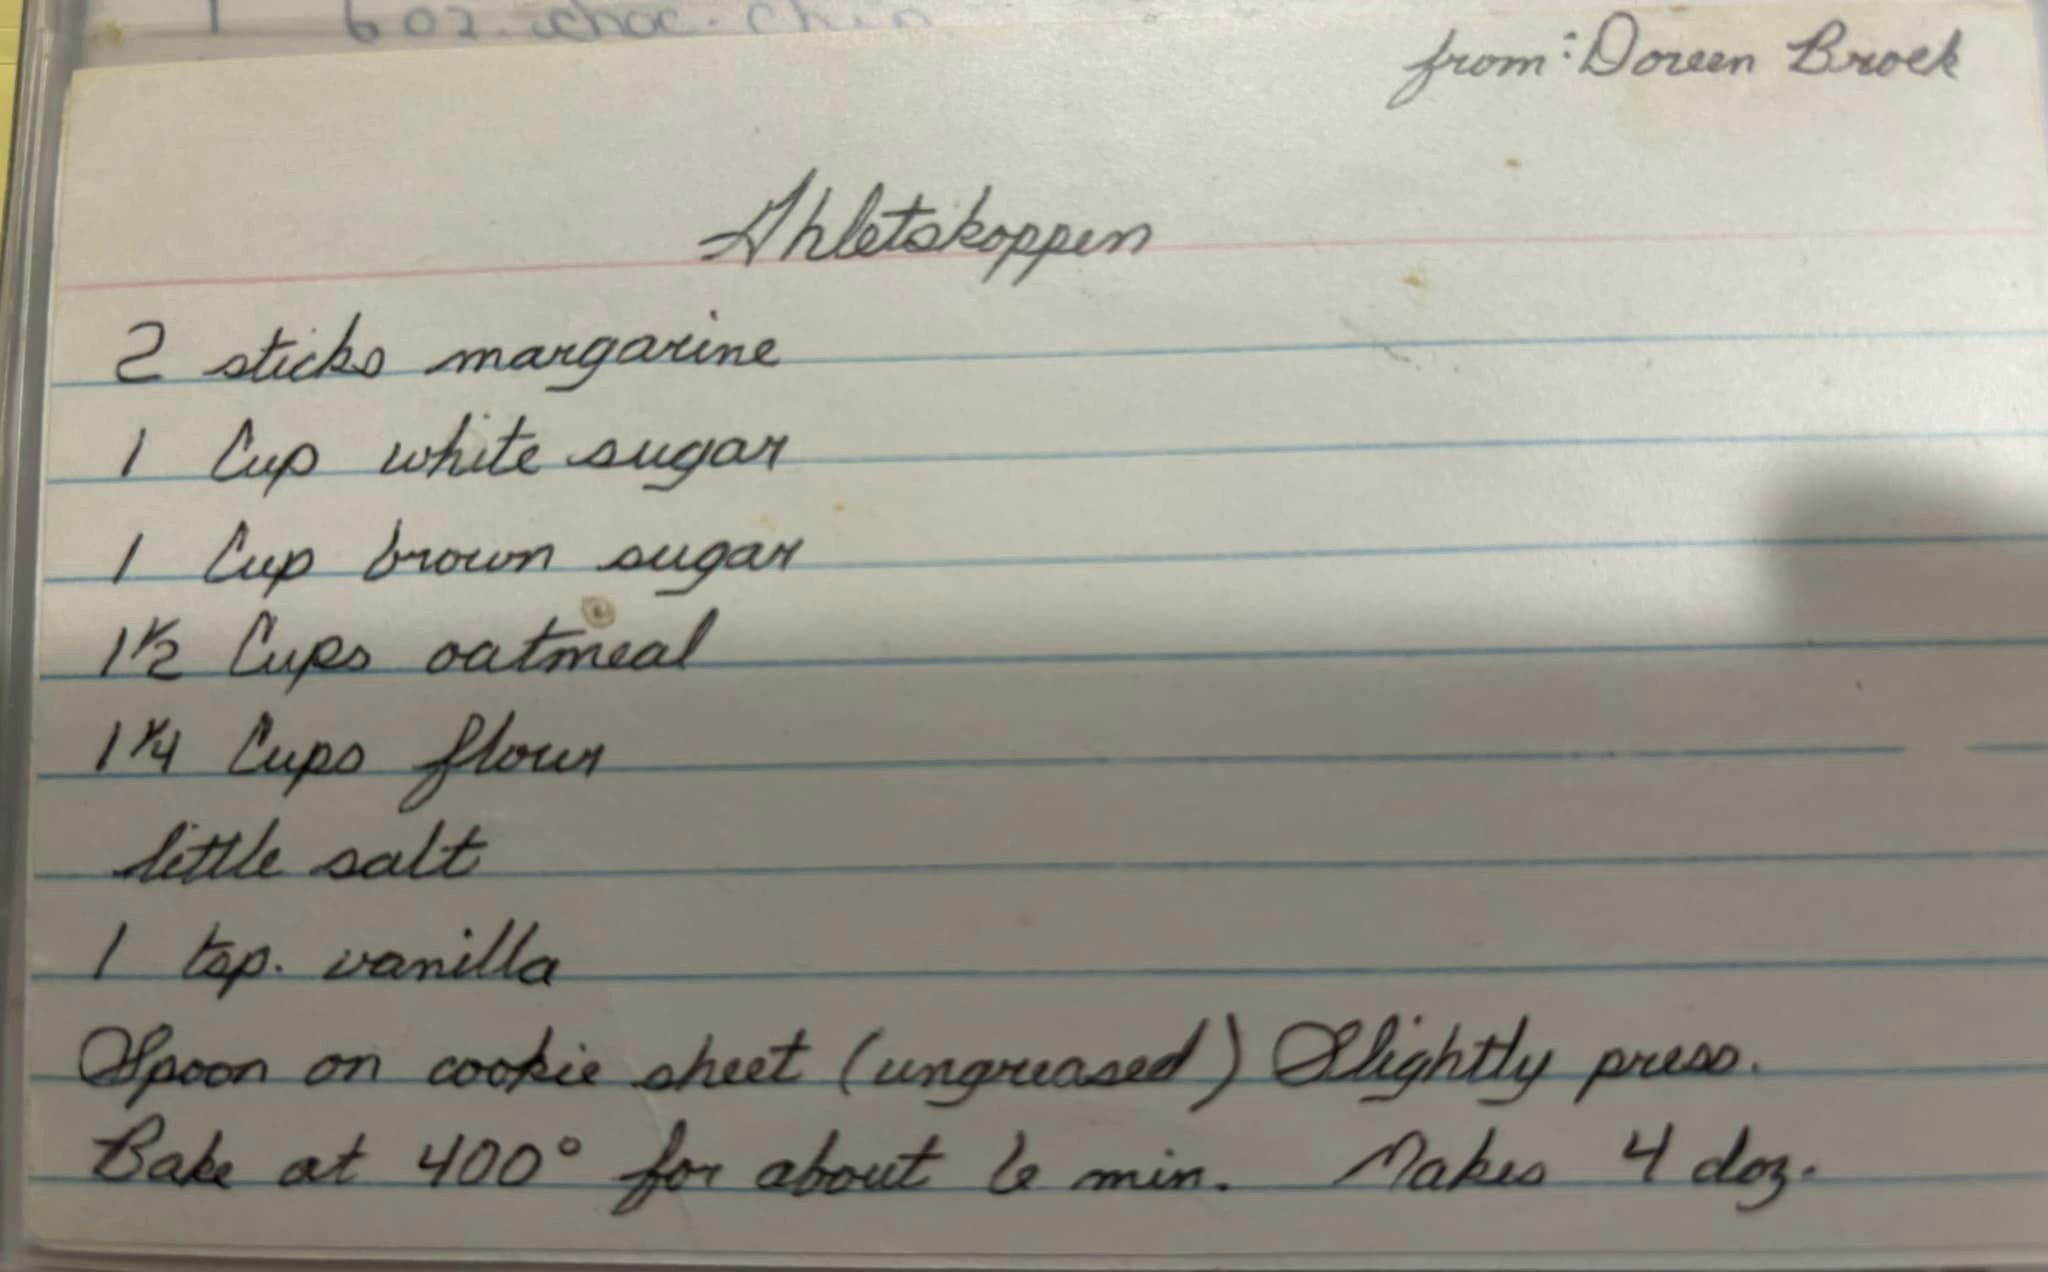 6 oz. choc. chip
from: Doreen Broek
Ahletskoppen
2 sticks margarine
1 Cup white sugar
1 Cup brown sugar
1 1/2 Cups oatmeal
1 1/4 Cups flour
little salt
1 tsp. vanilla
Spoon on cookie sheet (ungreased) Slightly press.
Bake at 400° for about 6 min. Makes 4 doz.